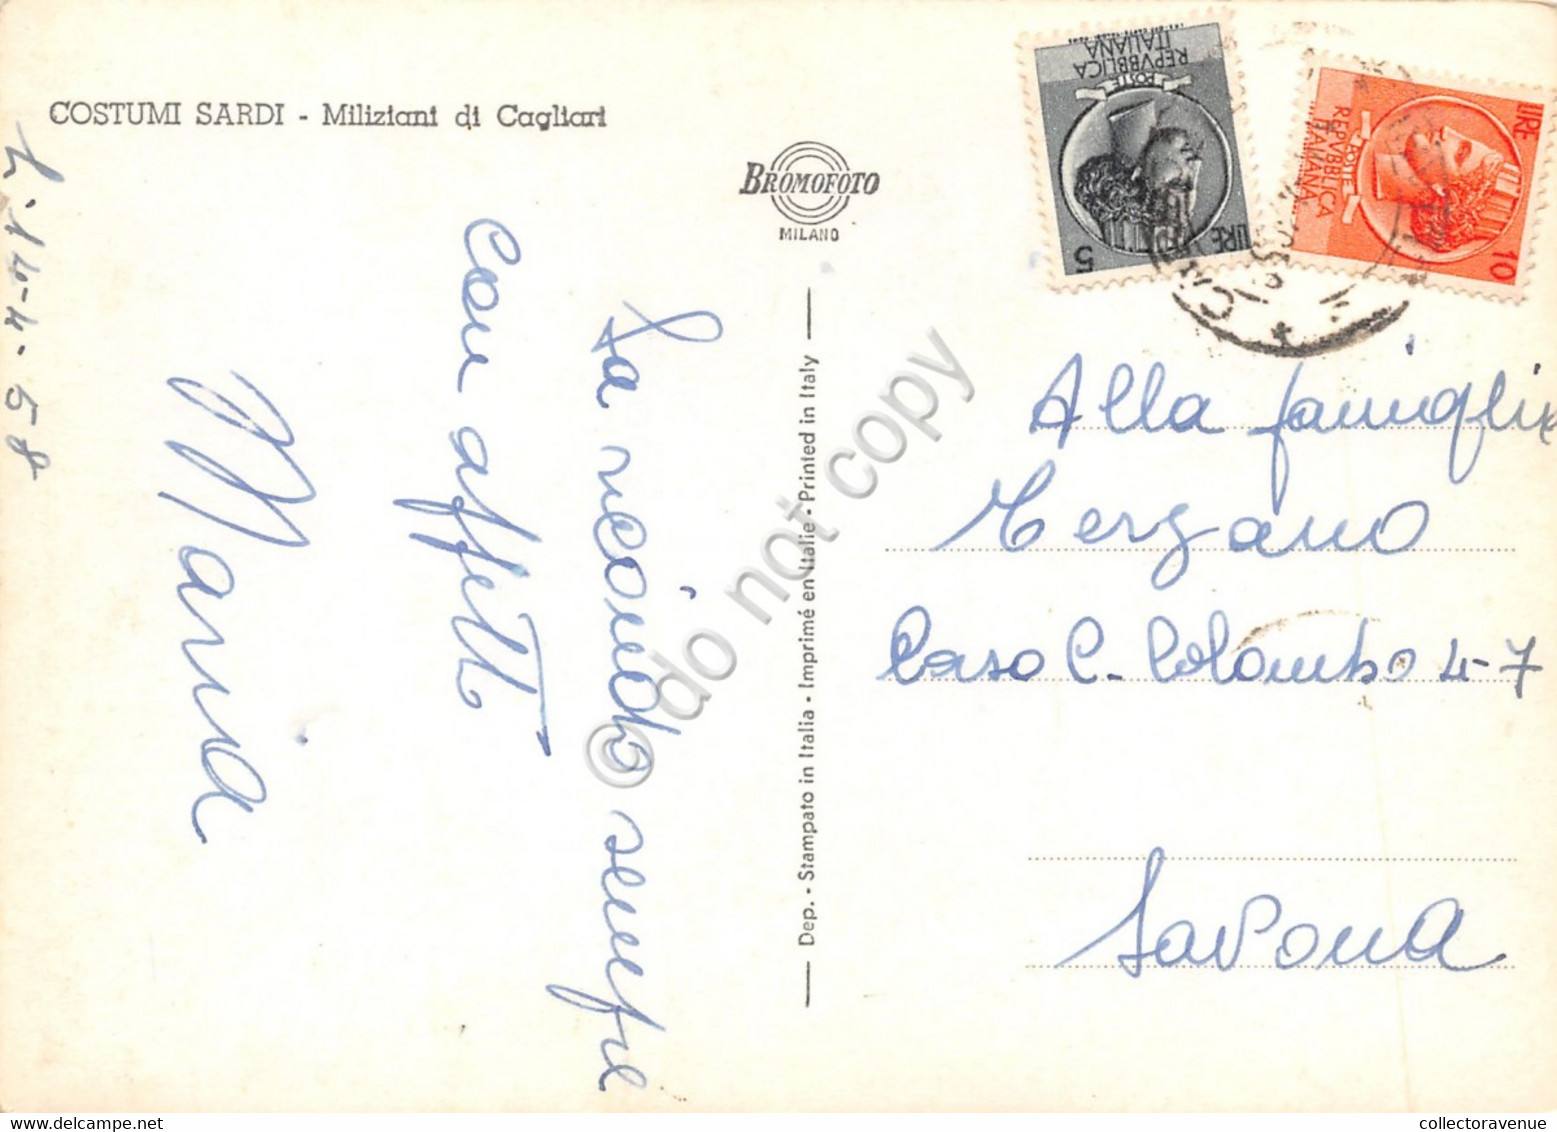 COSTUMI SARDI - Miliziani di Cagliari
BROMOFOTO
MILANO
Dep. - Stampato in Italia - Imprimé en Italie - Printed in Italy
La ricordo sempre
con affetto
Maria
14-4-58
POSTE
REPVBBLICA
ITALIANA
LIRE
5
POSTE
REPVBBLICA
ITALIANA
LIRE
10
Alla famiglia
Corso C. Colombo 4-7
Savona
© do not copy
collectoravenue.com